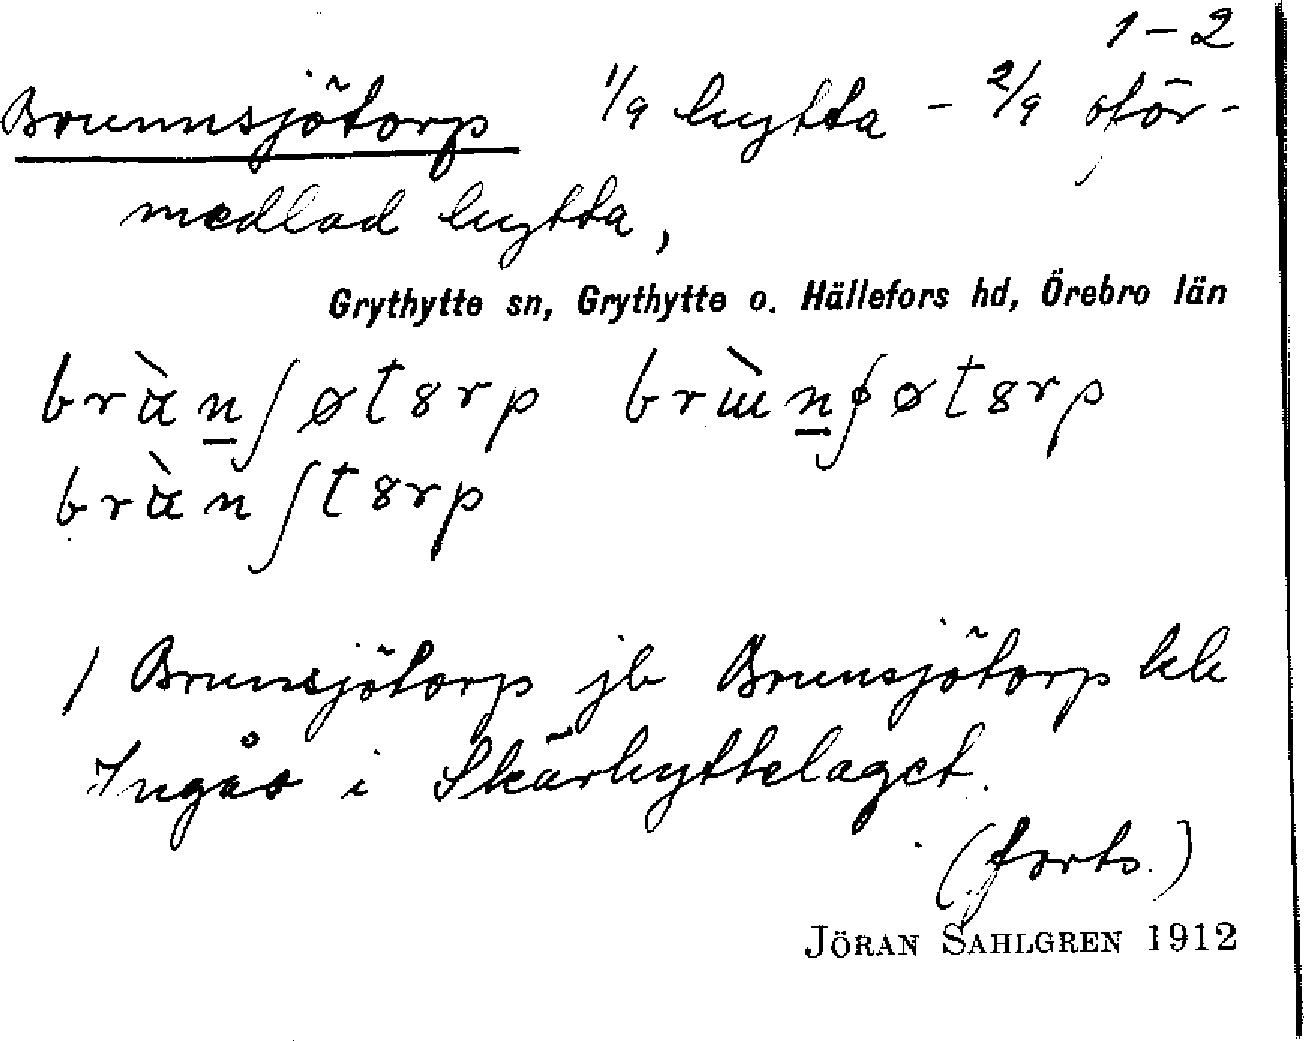 1-2
Brunnsjötorp 1/9 hytta - 2/9 oför-
medlad hytta,
Grythytte sn, Grythytte o. Hällefors hd, Örebro län
1/ Brunsjötorp jb Brunsjötorp hk
Ingås i Skärhyttelaget.
(forts.)
JÖRAN SAHLGREN 1912